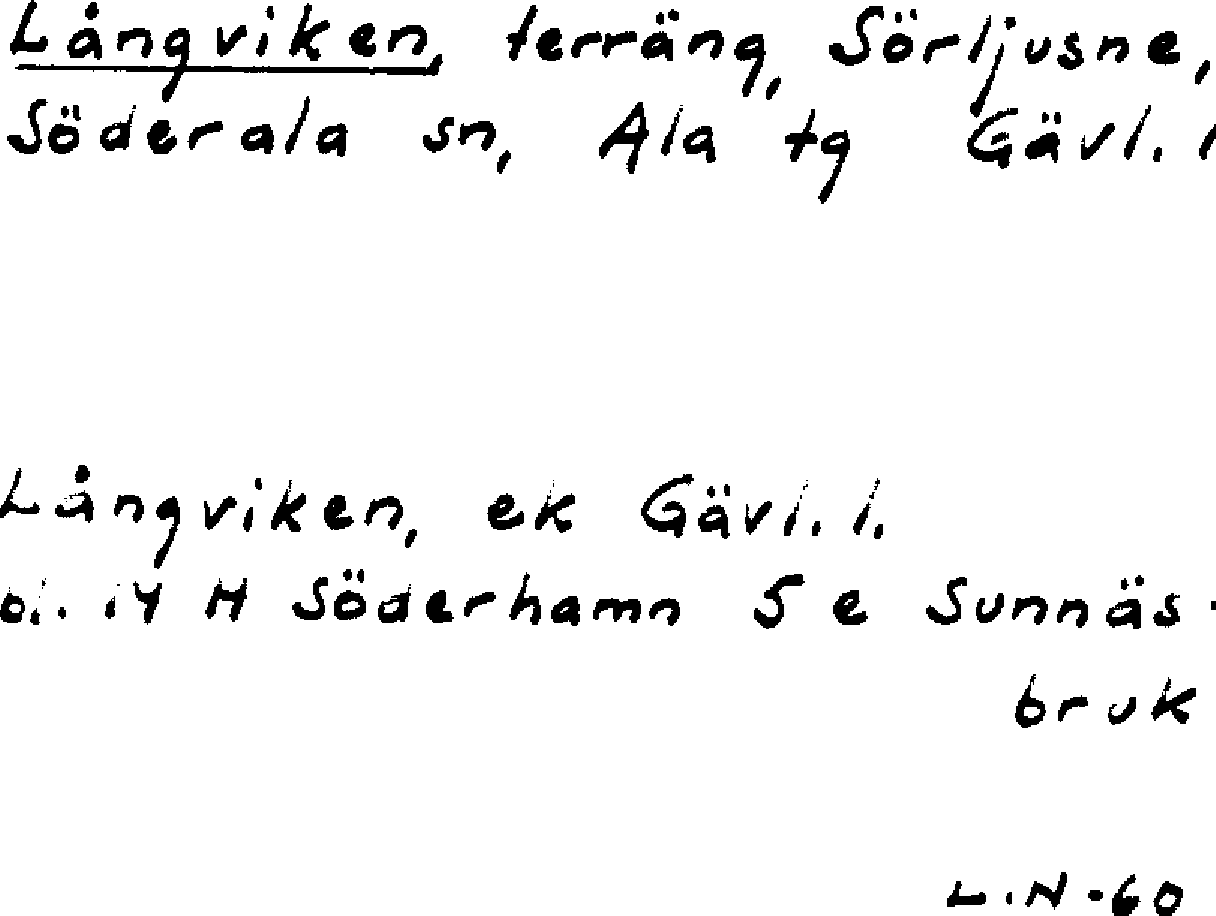 Långviken, terräng, Sörljusne,
Söderala sn, Ala tg Gävl. l
Långviken, ek Gävl. l.
bl. 14 H Söderhamn 5 e Sunnäs-
bruk
L.N-60